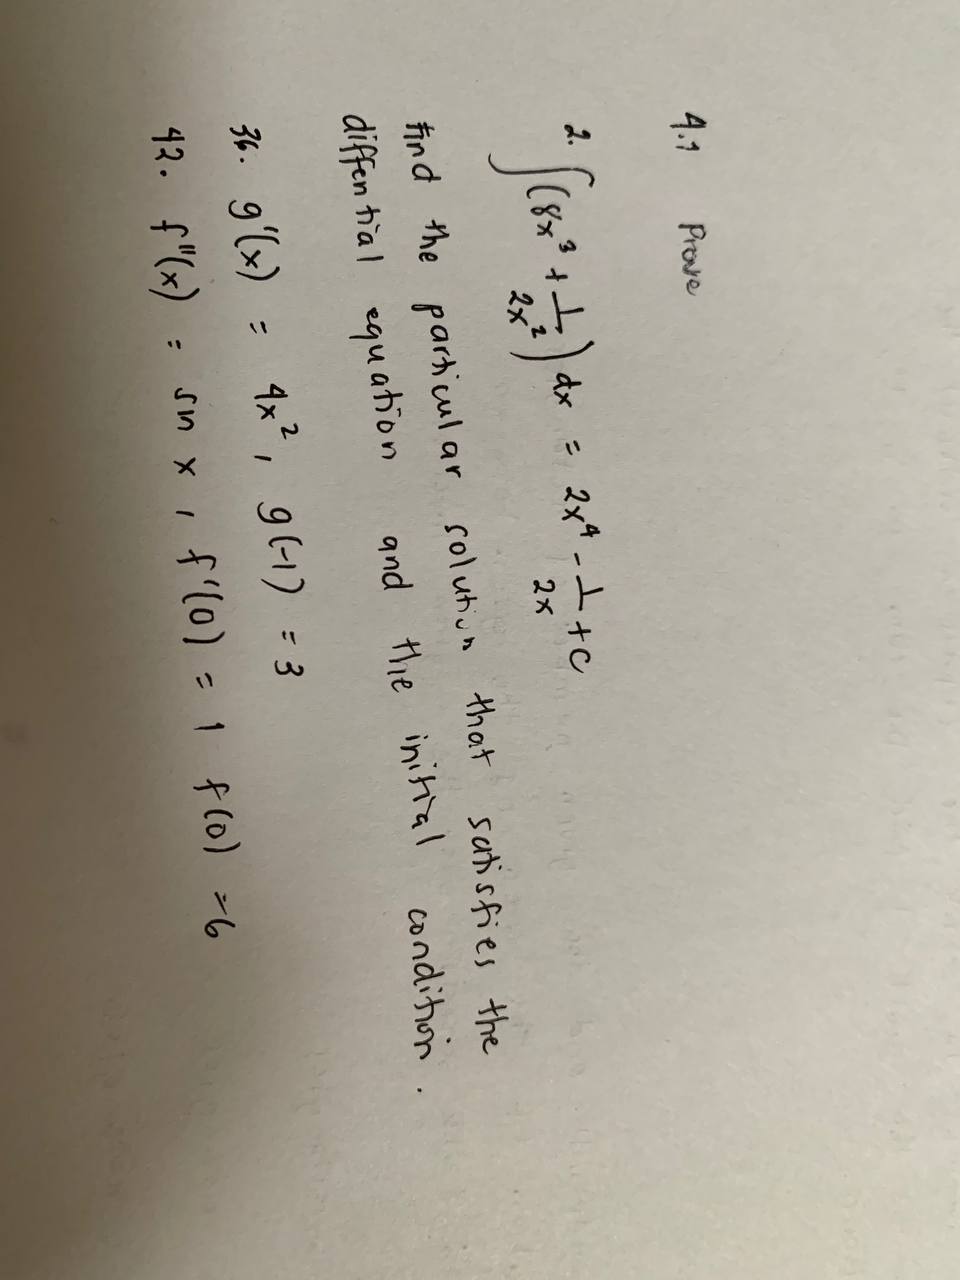 4.1 Prove
2. ∫(8x³ + 1/2x²) dx = 2x⁴ - 1/2x + C
Find the particular solution that satisfies the
diffential equation and the initial condition.
36. g'(x) = 4x², g(-1) = 3
42. f"(x) = sin x, f'(0) = 1 f(0) = 6